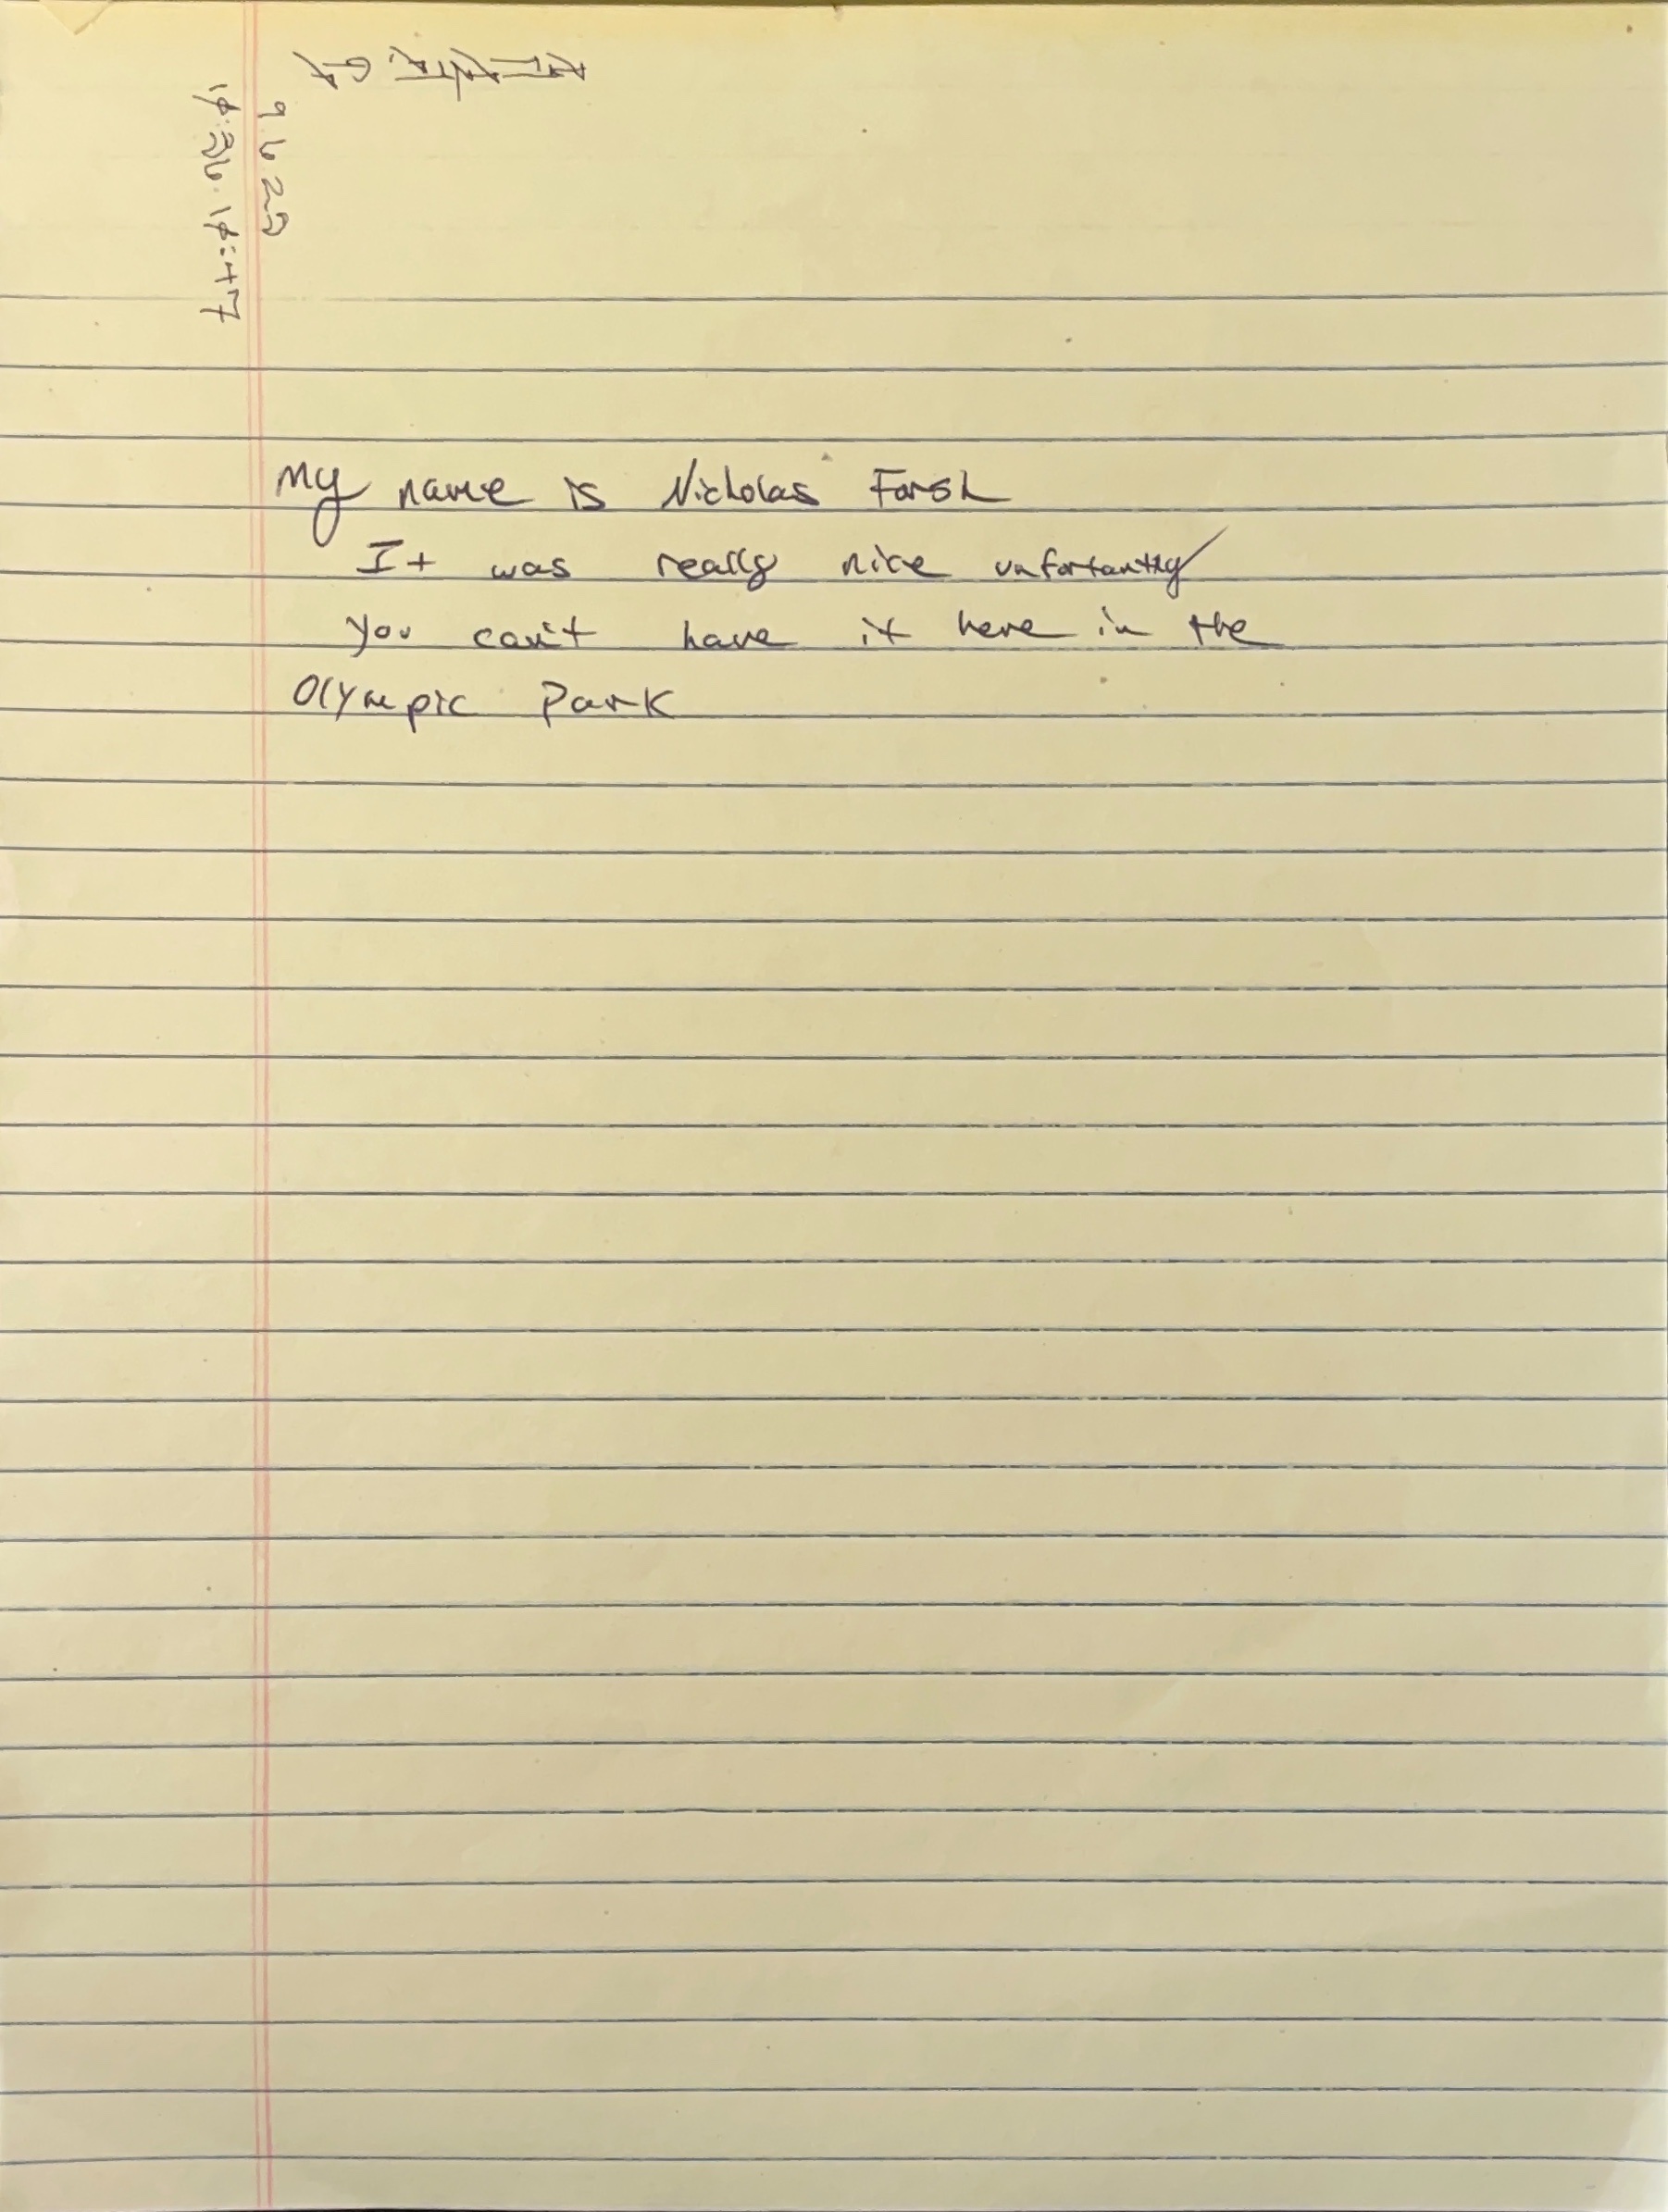 9.6.25
My name is Nicholas Farsh
It was really nice unfortantly
you can't have it here in the
Olympic Park